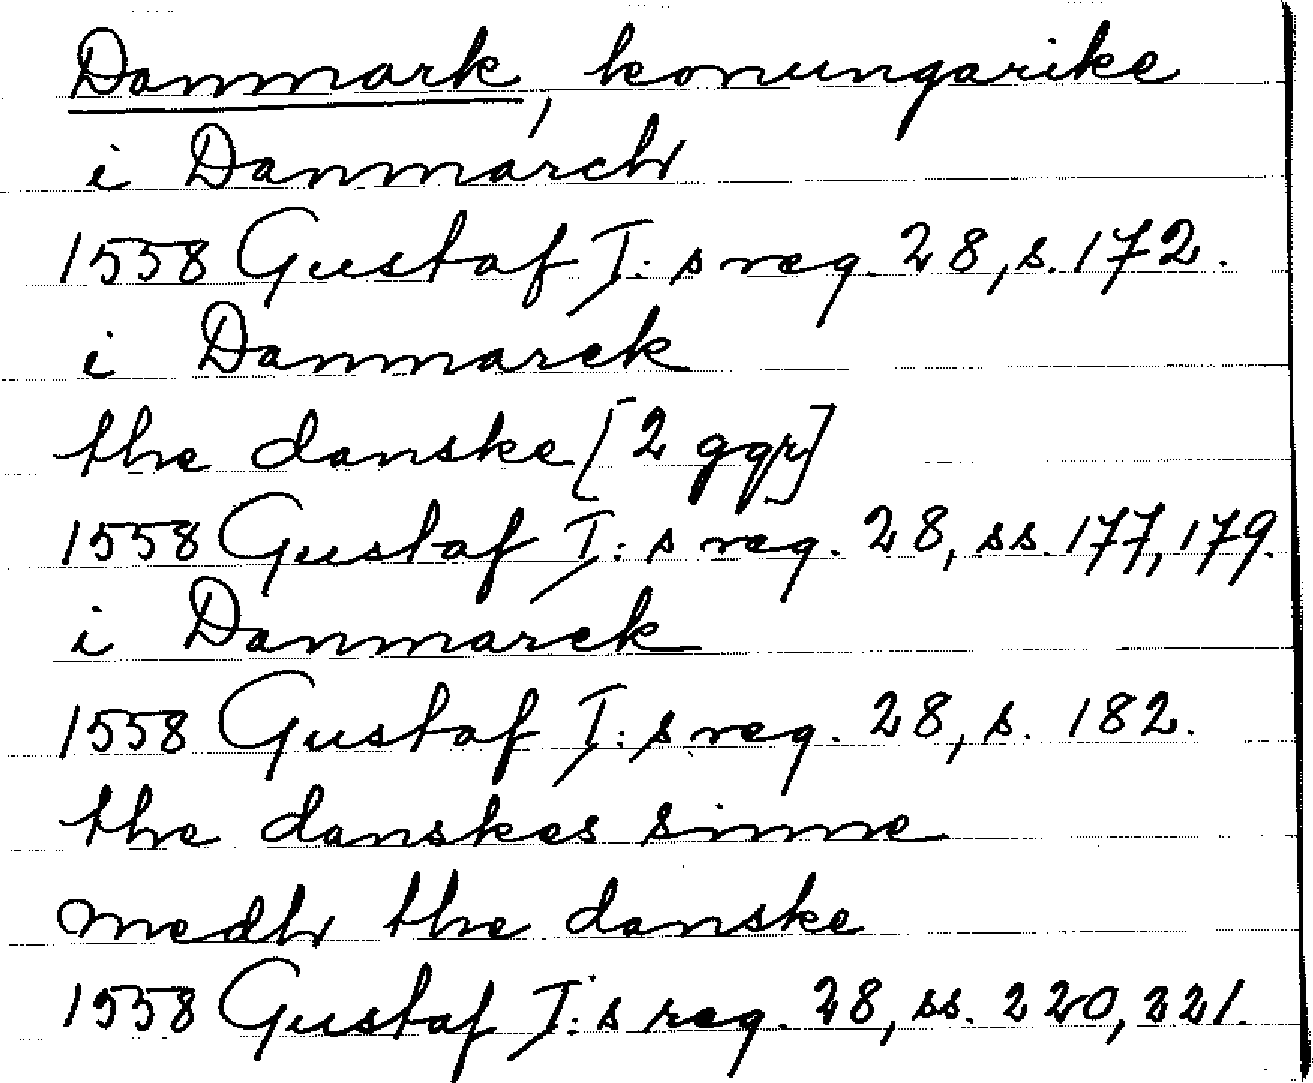 Danmark, konungarike
i Danmarch
1558 Gustaf I: s reg. 28, s. 172.
i Danmarck
the danske [2 ggr]
1558 Gustaf I: s reg. 28, ss. 177, 179.
i Danmarck
1558 Gustaf I: s reg. 28, s. 182.
the danskes sinne
medh the danske
1558 Gustaf I: s reg. 28, ss. 220, 221.